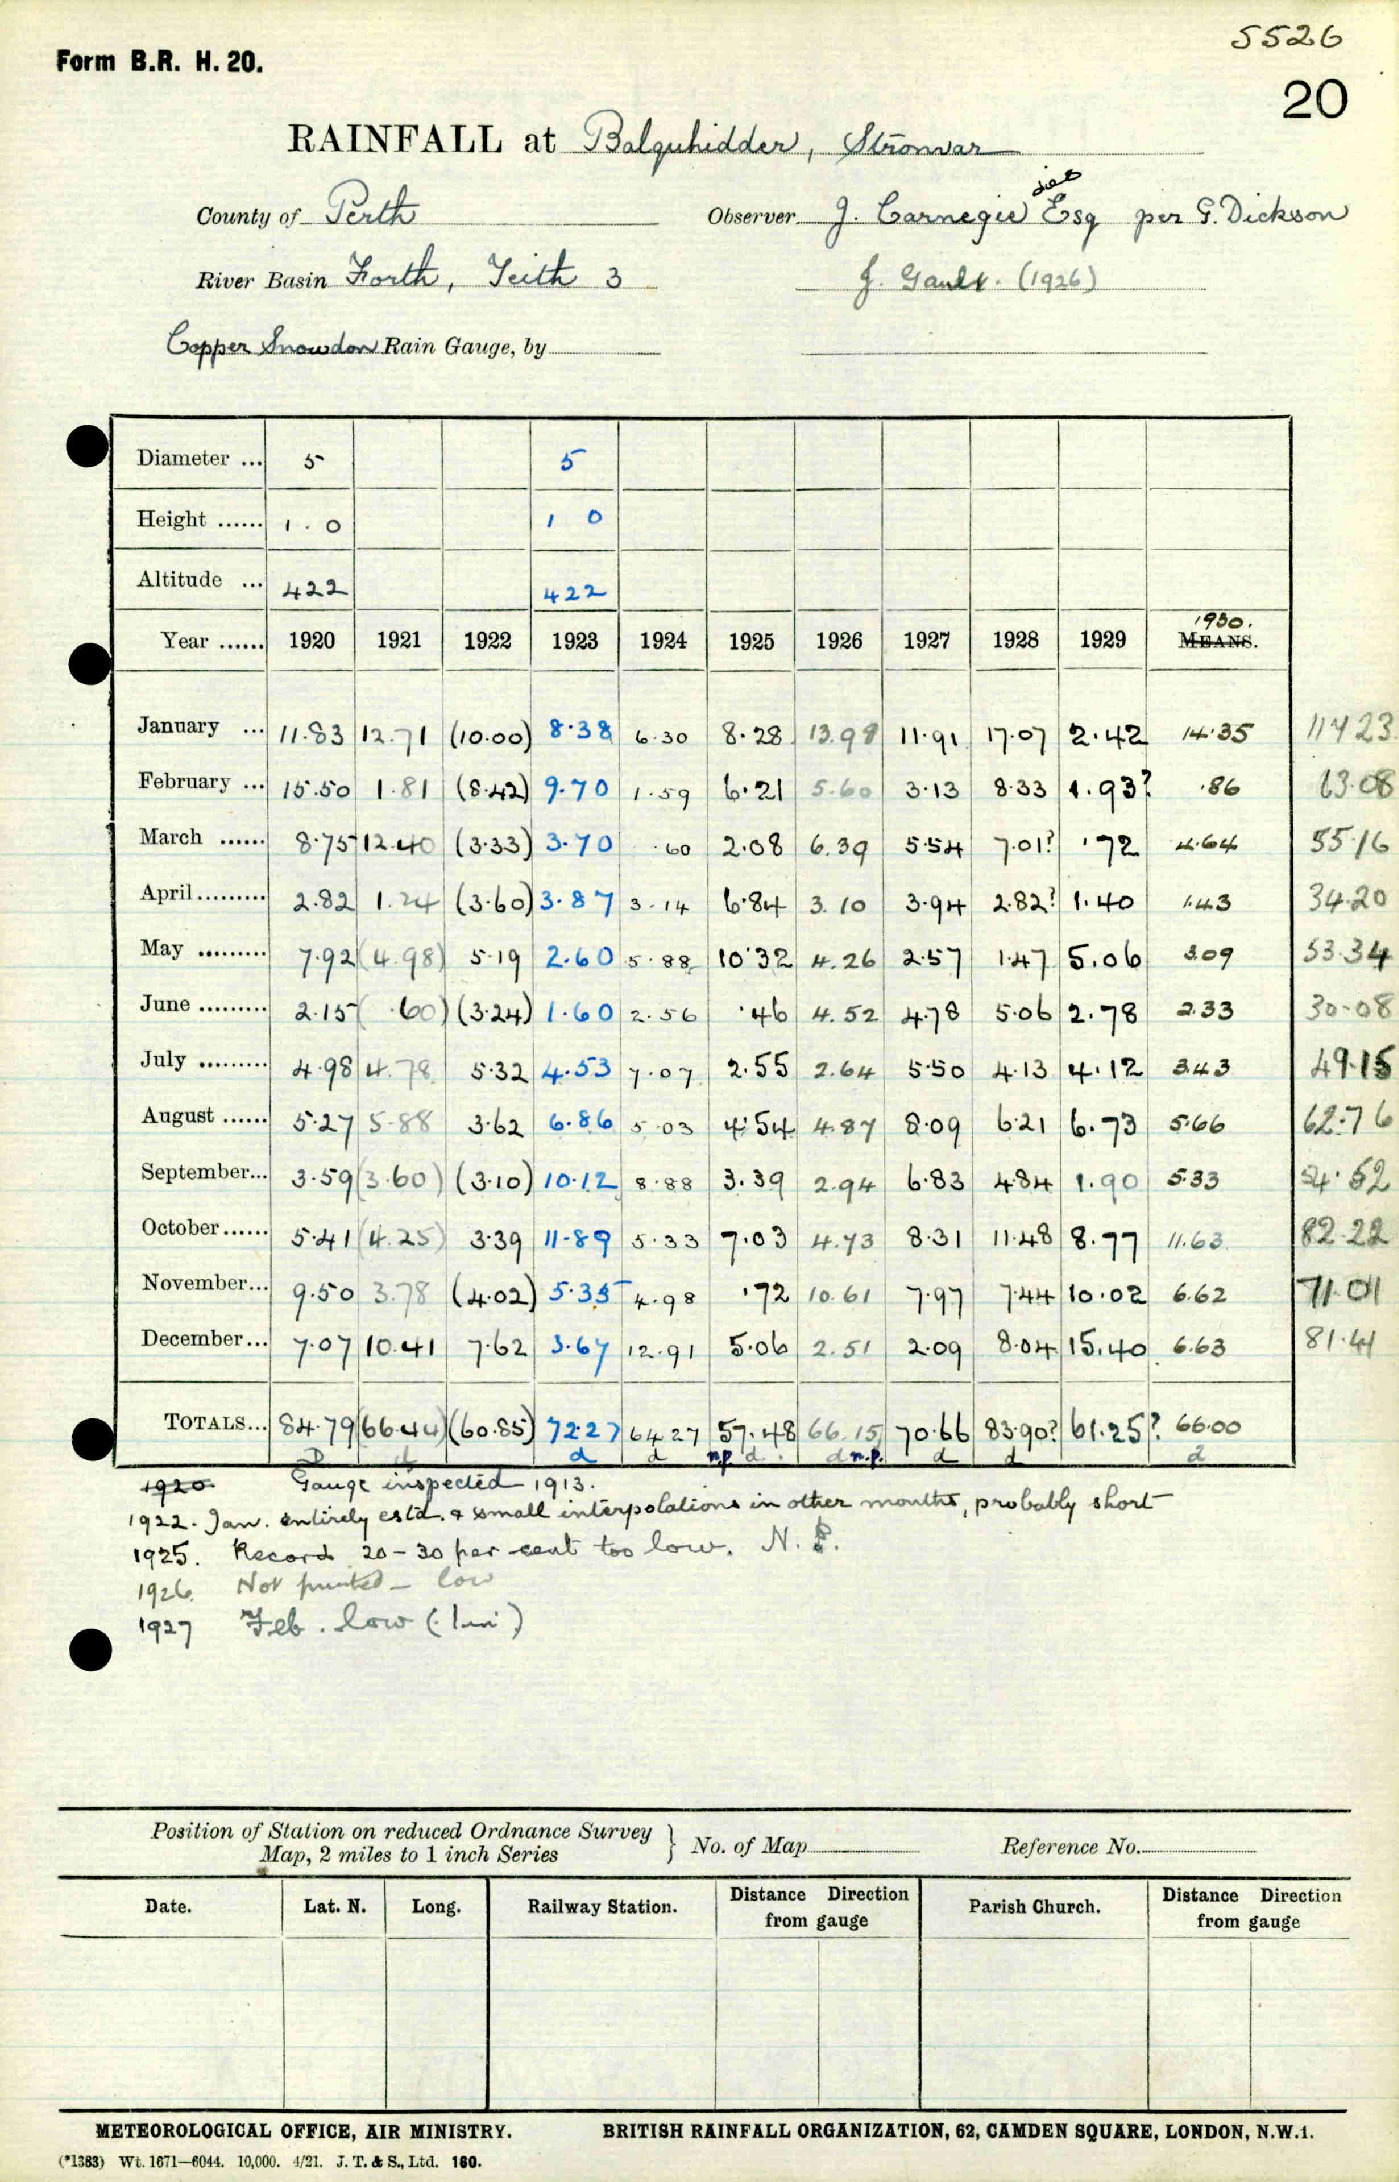 5526
Form B.R. H. 20.
20
RAINFALL at Balquhidder, Stronvar
County of Perth Observer J. Carnegie Esq per G. Dickson
River Basin Forth, Teith 3 J. Gault. (1926)
Copper Snowdon Rain Gauge, by
Diameter ... 5 5
Height ...... 1 . 0 1 0
Altitude ... 422 422
Year ...... 1920 1921 1922 1923 1924 1925 1926 1927 1928 1929 1930. MEANS.
January ... 11.83 12.71 (10.00) 8.38 6.30 8.28 13.98 11.91 17.07 2.42 14.35
February ... 15.50 1.81 (8.42) 9.70 1.59 6.21 5.60 3.13 8.33 1.93? .86 63.08
March ...... 8.75 12.40 (3.33) 3.70 .60 2.08 6.39 5.54 7.01? .72 4.64 55.16
April ......... 2.82 1.24 (3.60) 3.87 3.14 6.84 3.10 3.94 2.82? 1.40 1.43 34.20
May ......... 7.92 (4.98) 5.19 2.60 5.88 10.32 4.26 2.57 1.47 5.06 3.09 53.34
June ......... 2.15 (.60) (3.24) 1.60 2.56 .46 4.52 4.78 5.06 2.78 2.33 30.08
July ......... 4.98 4.78 5.32 4.53 7.07 2.55 2.64 5.50 4.13 4.12 3.43 49.15
August ...... 5.27 5.88 3.62 6.86 5.03 4.54 4.87 8.09 6.21 6.73 5.66 62.76
September... 3.59 (3.60) (3.10) 10.12 8.88 3.39 2.94 6.83 4.84 1.90 5.33 54.52
October ...... 5.41 (4.25) 3.39 11.89 5.33 7.03 4.73 8.31 11.48 8.77 11.63 82.22
November... 9.50 3.78 (4.02) 5.35 4.98 .72 10.61 7.97 7.44 10.02 6.62 71.01
December... 7.07 10.41 7.62 3.67 12.91 5.06 2.51 2.09 8.04 15.40 6.63 81.41
TOTALS... 84.79 (66.44) (60.85) 72.27 64.27 57.48 66.15 70.66 83.90? 61.25? 66.00
D d d d n.p. d. d n.p. d d d
1920 Gauge inspected 1913.
1922. Jan. entirely estd. & small interpolations in other months, probably short
1925. Record 20 - 30 per cent too low. N. P.
1926 Not printed - low
1927 Feb. low (1 in)
Position of Station on reduced Ordnance Survey
Map, 2 miles to 1 inch Series } No. of Map Reference No.
Date. Lat. N. Long. Railway Station. Distance Direction from gauge Parish Church. Distance Direction from gauge
METEOROLOGICAL OFFICE, AIR MINISTRY. BRITISH RAINFALL ORGANIZATION, 62, CAMDEN SQUARE, LONDON, N.W.1.
(*1383) Wt. 1671—6044. 10,000. 4/21. J. T. & S., Ltd. 160.